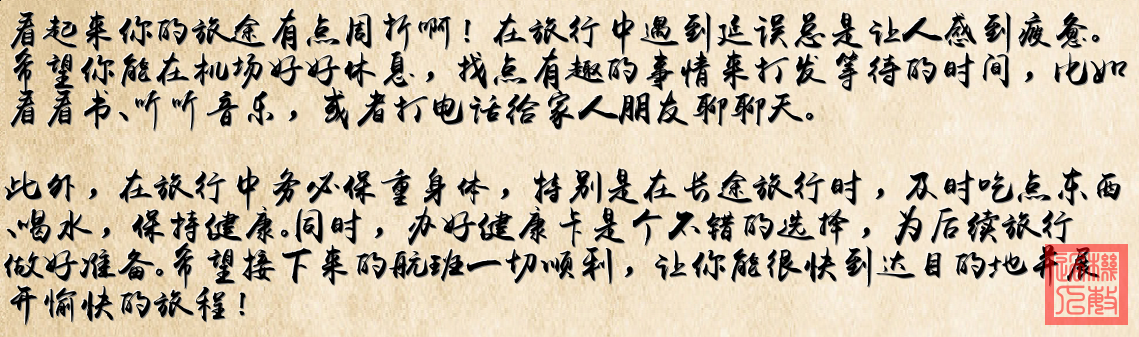 看起来你的旅途有点周折啊！在旅行中遇到延误总是让人感到疲惫。
希望你能在机场好好休息，找点有趣的事情来打发等待的时间，比如
看看书、听听音乐，或者打电话给家人朋友聊聊天。
此外，在旅行中务必保重身体，特别是在长途旅行时，及时吃点东西
、喝水，保持健康。同时，办好健康卡是个不错的选择，为后续旅行
做好准备。希望接下来的航班一切顺利，让你能很快到达目的地并展
开愉快的旅程！